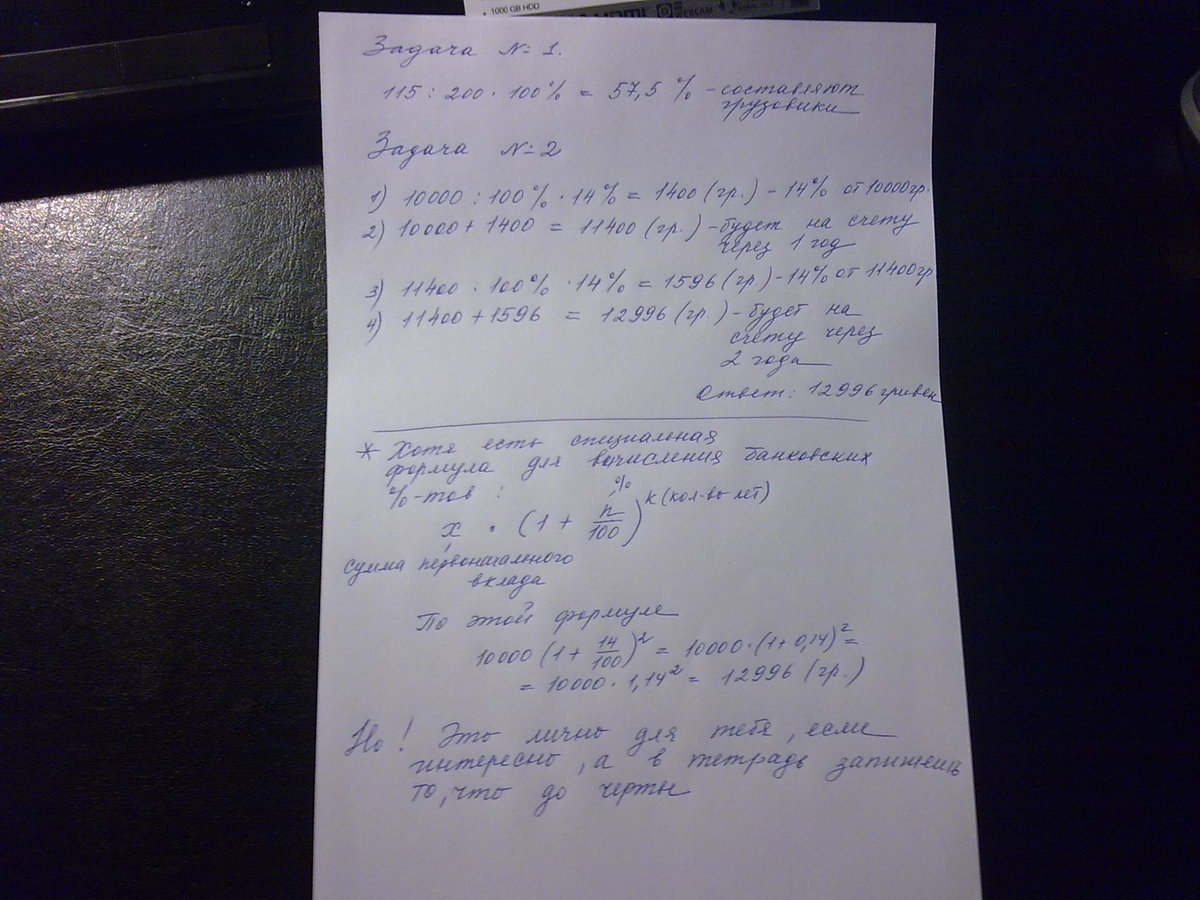 1000 GB HDD
WEBCAM
Задача № 1.
115 : 200 · 100% = 57,5 % - составляют
грузовики
Задача № 2
1) 10000 : 100% · 14% = 1400 (гр.) - 14% от 10000 гр.
2) 10000 + 1400 = 11400 (гр.) - будет на счету
через 1 год
3) 11400 : 100% · 14% = 1596 (гр) - 14% от 11400 гр
4) 11400 + 1596 = 12996 (гр) - будет на
счету через
2 года
Ответ: 12996 гривен
* Хотя есть специальная
формула для вычисления банковских
%-тов :
%
x · (1 + n/100)^k (кол-во лет)
сумма первоначального
вклада
По этой формуле
10000 (1 + 14/100)^2 = 10000 · (1 + 0,14)^2 =
= 10000 · 1,14^2 = 12996 (гр.)
Но! Это лично для тебя, если
интересно, а в тетрадь запишешь
то, что до черты